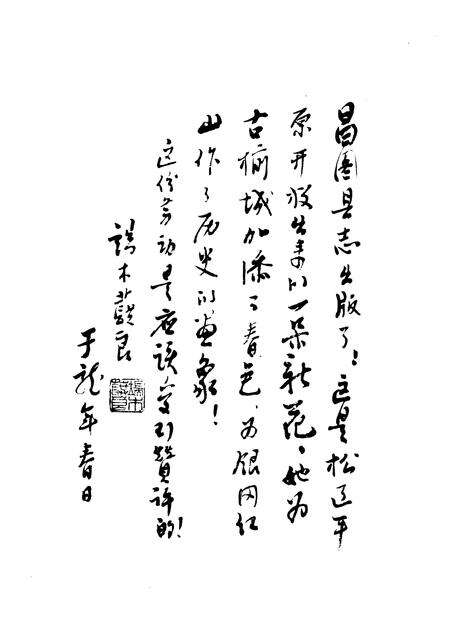 昌图县志出版了！这是松辽平
原开放出来的一朵新花，她为
古榆城加添了春色，为银冈红
山作了历史的画象！
这份劳动是应该受到赞许的！
端木蕻良
于龙年春日